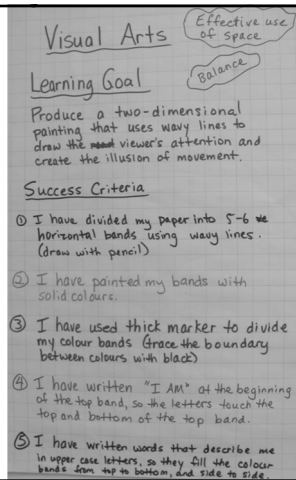 Visual Arts
Effective use
of space
Balance
Learning Goal
Produce a two-dimensional
painting that uses wavy lines to
draw the viewer's attention and
create the illusion of movement.
Success Criteria
① I have divided my paper into 5-6
horizontal bands using wavy lines.
(draw with pencil)
② I have painted my bands with
solid colours.
③ I have used thick marker to divide
my colour bands (trace the boundary
between colours with black)
④ I have written "I AM" at the beginning
of the top band, so the letters touch the
top and bottom of the top band.
⑤ I have written words that describe me
in upper case letters, so they fill the colour
bands from top to bottom, and side to side.